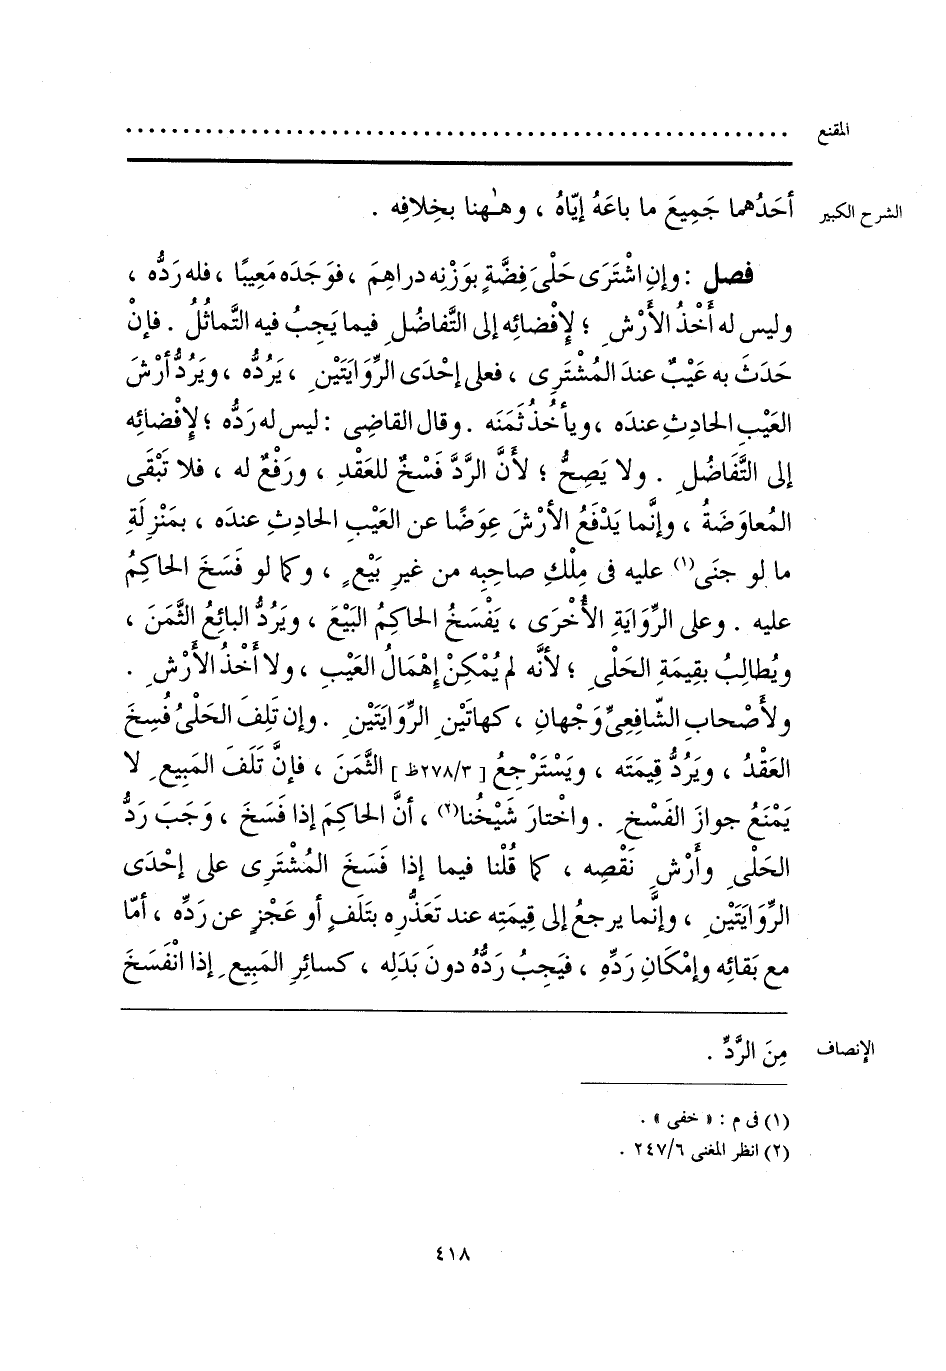 المقنع ......................................................
الشرح الكبير أحَدُهما جَمِيعَ ما باعَهُ إيّاهُ ، وهـٰهنا بخِلافِه .
فصل : وإنِ اشْتَرَى حَلْىَ فِضَّةٍ بوَزْنِه دراهِمَ ، فوَجَدَه مَعِيبًا ، فله رَدُّه ،
وليس له أخْذُ الأَرْشِ ؛ لإِفْضائِه إلى التَّفاضُلِ فيما يَجِبُ فيه التَّماثُلُ . فإنْ
حَدَثَ به عَيْبٌ عندَ المُشْتَرِى ، فعلى إحْدَى الرِّوايَتَيْنِ ، يَرُدُّه ، ويَرُدُّ أرْشَ
العَيْبِ الحادِثِ عندَه ، ويأخُذُ ثَمَنَه . وقال القاضِى : ليس له رَدُّه ؛ لإِفْضائِه
إلى التَّفَاضُلِ . ولا يَصِحُّ ؛ لأَنَّ الرَّدَّ فَسْخٌ للعَقْدِ ، ورَفْعٌ له ، فلا تَبْقَى
المُعاوَضَةُ ، وإنَّما يَدْفَعُ الأرْشَ عِوَضًا عن العَيْبِ الحادِثِ عندَه ، بمَنْزِلَةِ
ما لو جنَى(١) عليه فى مِلْكِ صاحِبِه من غيرِ بَيْعٍ ، وكما لو فَسَخَ الحاكِمُ
عليه . وعلى الرِّوَايَةِ الأُخْرَى ، يَفْسَخُ الحاكِمُ البَيْعَ ، ويَرُدُّ البائِعُ الثَّمَنَ ،
ويُطالِبُ بقِيمَةِ الحَلْىِ ؛ لأنَّه لم يُمْكِنْ إهْمَالُ العَيْبِ ، ولا أَخْذُ الأَرْشِ .
ولأَصْحابِ الشّافِعِىِّ وَجْهانِ ، كهاتَيْنِ الرِّوَايَتَيْنِ . وإن تَلِفَ الحَلْىُ فُسِخَ
العَقْدُ ، ويَرُدُّ قِيمَتَه ، ويَسْتَرْجِعُ [ ٢٧٨/٣ظ ] الثَّمَنَ ، فإنَّ تَلَفَ المَبِيعِ لا
يَمْنَعُ جوازَ الفَسْخِ . واخْتارَ شَيْخُنا(٢) ، أنَّ الحاكِمَ إذا فَسَخَ ، وَجَبَ رَدُّ
الحَلْىِ وأَرْشِ نَقْصِه ، كما قُلْنا فيما إذا فَسَخَ المُشْتَرِى على إحْدَى
الرِّوَايَتَيْنِ ، وإنَّما يرجعُ إلى قِيمَتِه عند تَعَذُّرِه بتَلَفٍ أو عَجْزٍ عن رَدِّه ، أمّا
مع بَقائِه وإمْكَانِ رَدِّهِ ، فيَجِبُ رَدُّهُ دونَ بَدَلِه ، كسائِرِ المَبِيعِ إذا انْفَسَخَ
الإنصاف مِنَ الرَّدِّ .
(١) فى م : « خفى » .
(٢) انظر المغنى ٢٤٧/٦ .
٤١٨